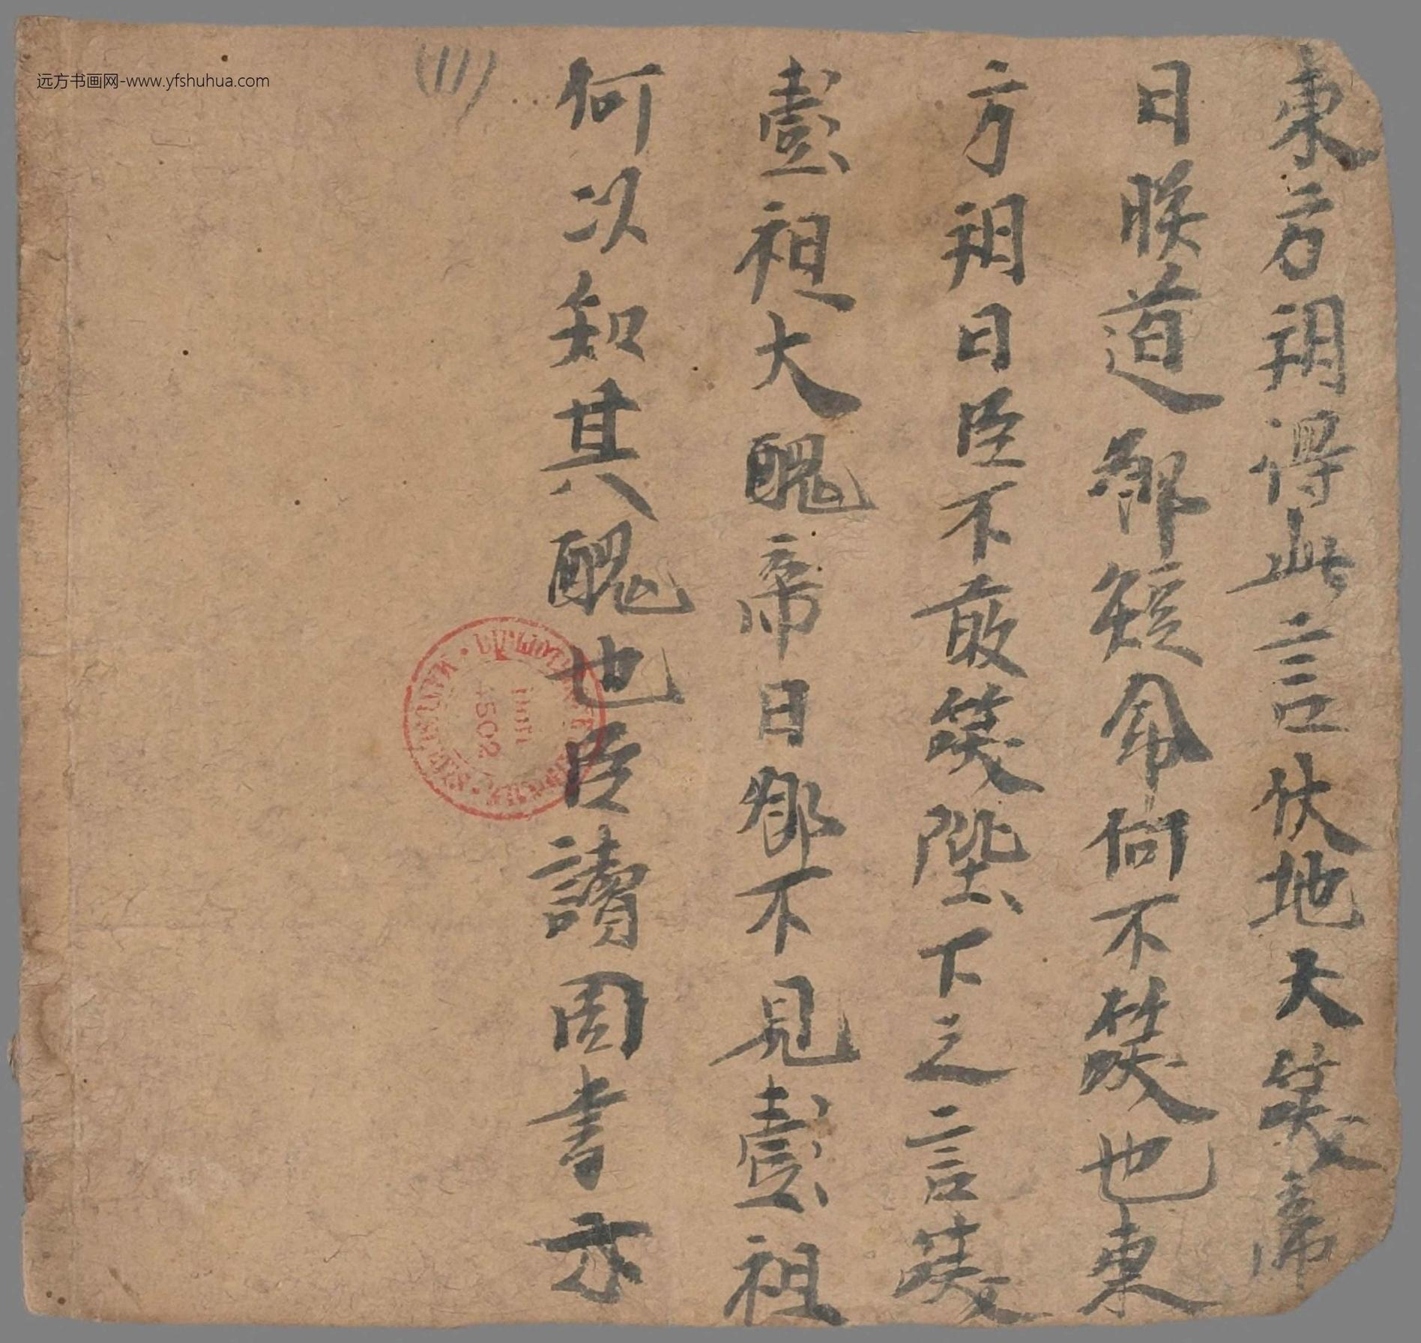 远方书画网-www.yfshuhua.com
東方朔得此言伏地大笑帝
曰朕道卿短命何不笑也東
方朔曰臣不敢笑陛下之言笑
彭祖大醜帝曰卿不見彭祖
何以知其醜也臣讀周書亦
(11)
4502